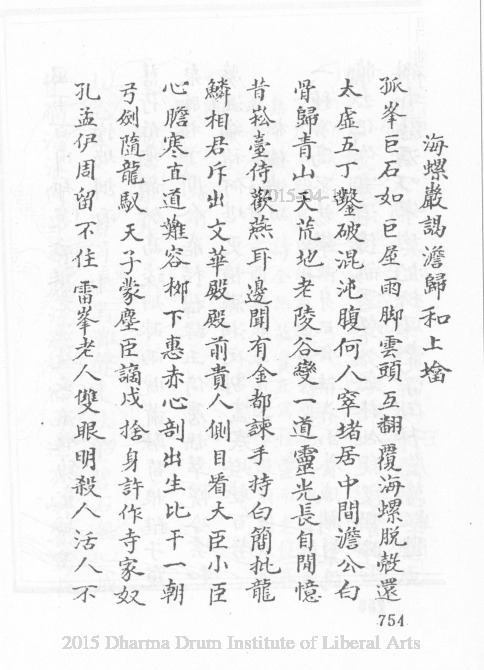 海螺巖謁澹歸和上塔
孤峯巨石如巨屋雨脚雲頭互翻覆海螺脫殼還
太虛五丁鑿破混沌腹何人窣堵居中間澹公白
骨歸青山天荒地老陵谷變一道靈光長自閒憶
昔崧臺侍歡燕耳邊聞有金都諫手持白簡批龍
鱗相君斥出文華殿殿前貴人側目看大臣小臣
心膽寒直道難容柳下惠赤心剖出生比干一朝
弓劍隨龍馭天子蒙塵臣謫戍捨身許作寺家奴
孔孟伊周留不住雷峯老人雙眼明殺人活人不
754
2015-04-1
2015 Dharma Drum Institute of Liberal Arts